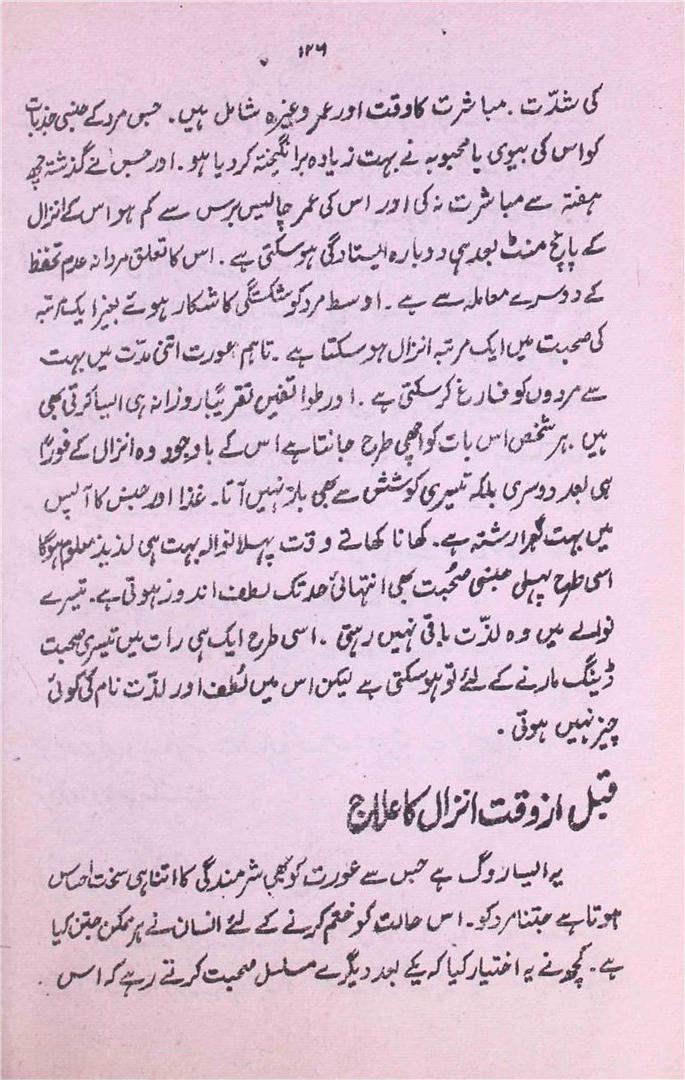 ۱۲۶
کی شدّت ۔ مباشرت کا وقت اور عمر وغیرہ شامل ہیں ۔ جس مرد کے جنسی جذبات
کو اس کی بیوی یا محبوبہ نے بہت زیادہ برانگیختہ کر دیا ہو ۔ اور جس نے گذشتہ چھ
ہفتہ سے مباشرت نہ کی اور اس کی عمر چالیس برس سے کم ہو اس کے انزال
کے پانچ منٹ بعد ہی دوبارہ ایستادگی ہو سکتی ہے ۔ اس کا تعلق مردانہ عدم تحفظ
کے دوسرے معاملہ سے ہے ۔ اوسط مرد کو شکستگی کا شکار ہوئے بغیر ایک مرتبہ
کی صحبت میں ایک مرتبہ انزال ہو سکتا ہے ۔ تاہم عورت اتنی مدّت میں بہت
سے مردوں کو فارغ کر سکتی ہے ۔ اور طوائفیں تقریباً روزانہ ہی ایسا کرتی بھی
ہیں ۔ ہر شخص اس بات کو اچھی طرح جانتا ہے اس کے باوجود وہ انزال کے فوراً
ہی بعد دوسری بلکہ تیسری کوشش سے بھی باز نہیں آتا ۔ غذا اور جنس کا آپس
میں بہت گہرا رشتہ ہے ۔ کھانا کھاتے وقت پہلا نوالہ بہت ہی لذیذ معلوم ہوگا
اسی طرح پہلی جنسی صحُبت بھی انتہائی حد تک لطف اندوز ہوتی ہے ۔ تیسرے
نوالے میں وہ لذّت باقی نہیں رہتی ۔ اسی طرح ایک ہی رات میں تیسری صحبت
ڈینگ مارنے کے لئے تو ہو سکتی ہے لیکن اس میں لُطف اور لذّت نام کی کوئی
چیز نہیں ہوتی ۔
قبل از وقت انزال کا علاج
یہ ایسا روگ ہے جس سے عورت کو بھی شرمندگی کا اتنا ہی سخت احساس
ہوتا ہے جتنا مرد کو ۔ اس حالت کو ختم کرنے کے لئے انسان نے ہر ممکن جتن کیا
ہے ۔ کچھ نے یہ اختیار کیا کہ یکے بعد دیگرے مسلسل صحبت کرتے رہے کہ اس